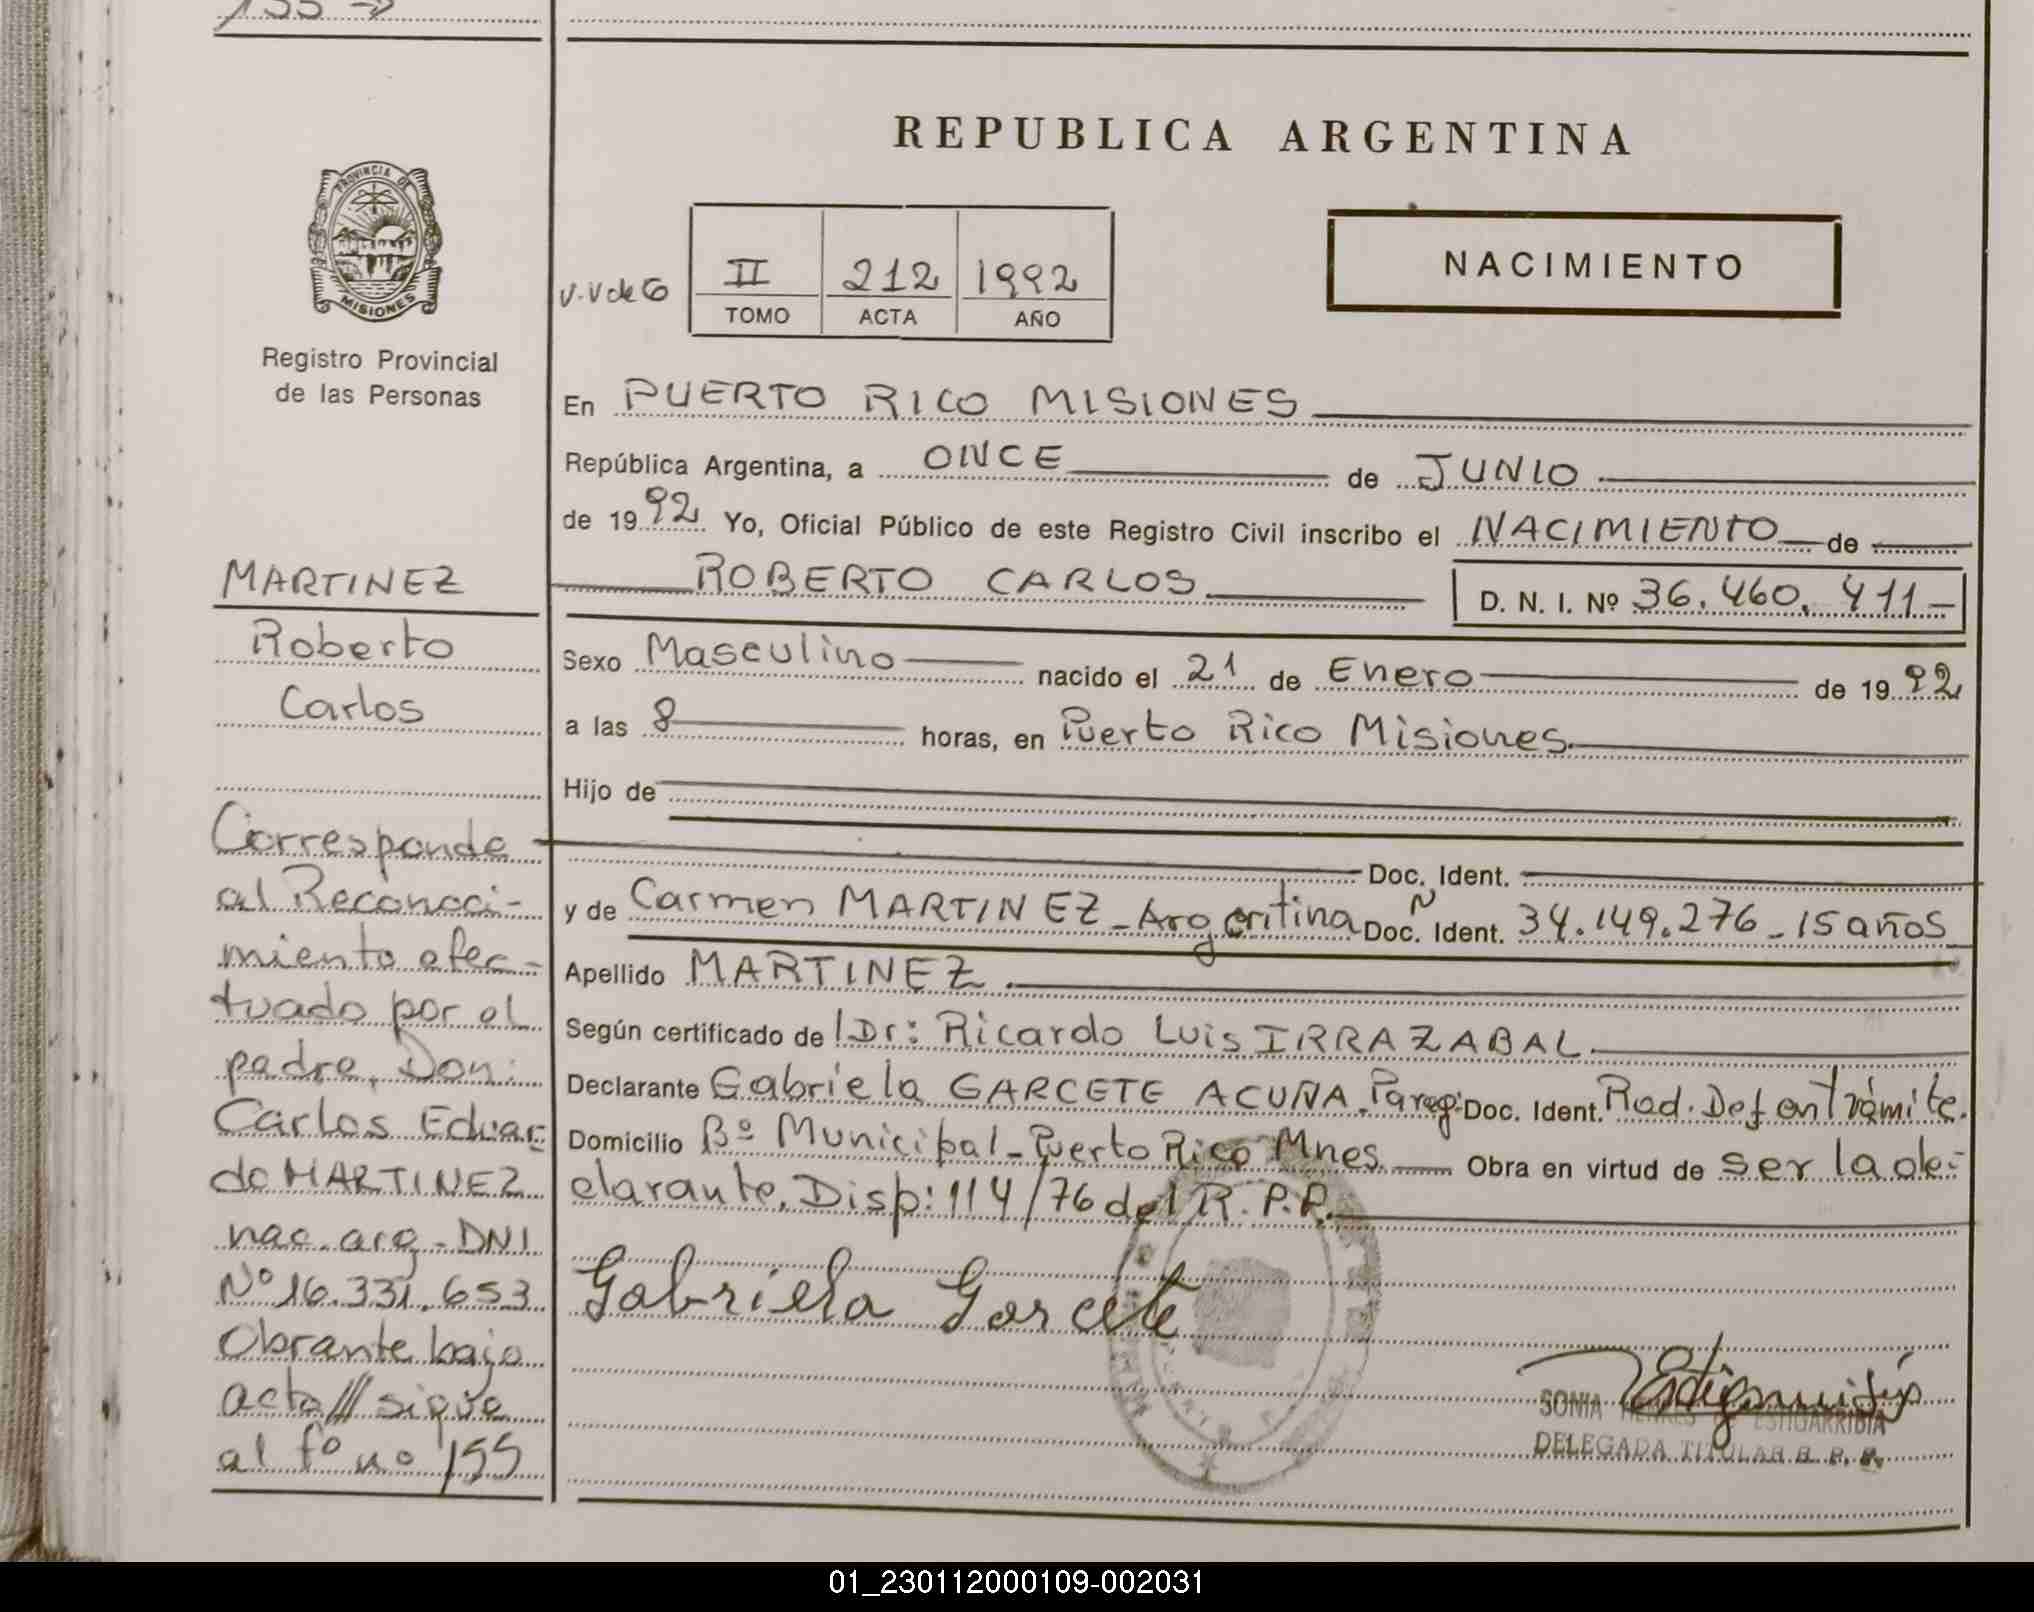 155 →
REPUBLICA ARGENTINA
PROVINCIA DE
MISIONES
Registro Provincial
de las Personas
V.V de G
II 212 1992
TOMO ACTA AÑO
NACIMIENTO
En PUERTO RICO MISIONES
República Argentina, a ONCE de JUNIO
de 1992 Yo, Oficial Público de este Registro Civil inscribo el NACIMIENTO de
ROBERTO CARLOS D. N. I. Nº 36.460.411-
Sexo Masculino nacido el 21 de Enero de 1992
a las 8 horas, en Puerto Rico Misiones
Hijo de
Doc. Ident.
y de Carmen MARTINEZ - Argentina Doc. N Ident. 34.149.276 - 15 años
Apellido MARTINEZ
Según certificado de Dr: Ricardo Luis IRRAZABAL
Declarante Gabriela GARCETE ACUÑA. Parag. Doc. Ident. Rad. Def en Trámite.
Domicilio Bº Municipal - Puerto Rico Mnes Obra en virtud de ser la de-
clarante. Disp: 114/76 del R.P.P.
Gabriela Garcete
SONIA ESTIGARRIBIA
DELEGADA TITULAR R. P. P.
MARTINEZ
Roberto
Carlos
Corresponde
al Reconoci-
miento efec-
tuado por el
padre, Don:
Carlos Eduar-
do MARTINEZ
nac. arg - DNI
Nº 16.331.653
Obrante bajo
acta/// sigue
al fº nº 155
01_230112000109-002031